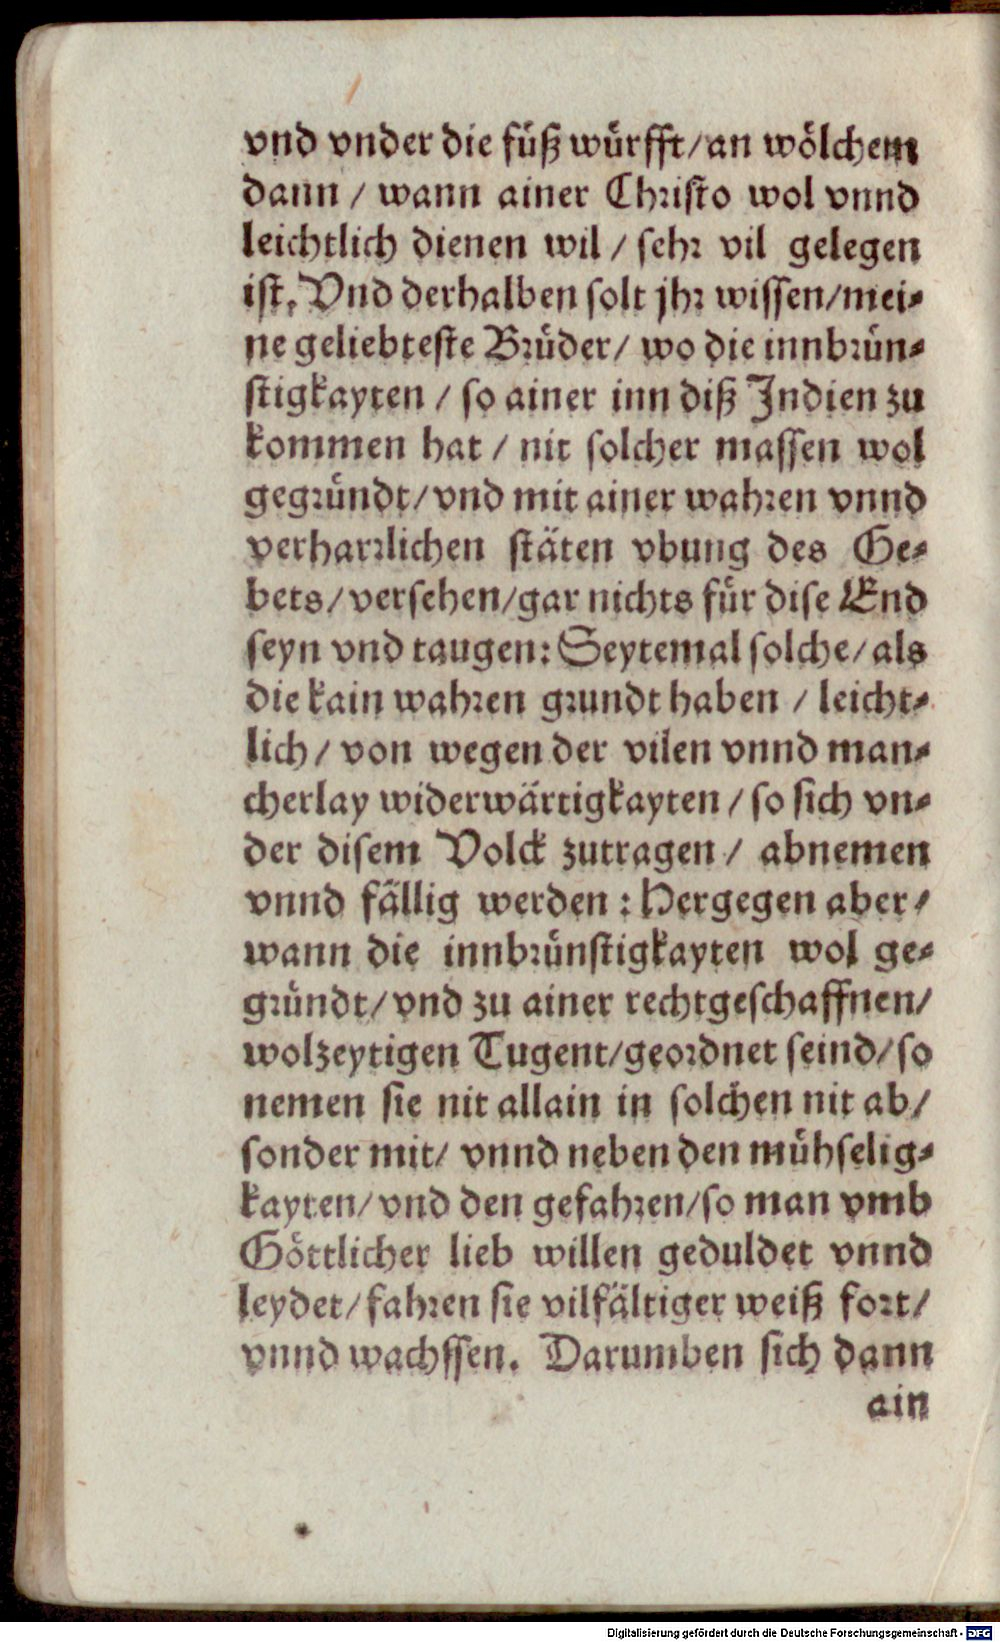 vnd vnder die füß würfft/an wölchem
dann / wann ainer Christo wol vnnd
leichtlich dienen wil / sehr vil gelegen
ist. Vnd derhalben solt jhr wissen/mei-
ne geliebteste Brüder/ wo die innbrün-
stigkayten / so ainer inn diß Indien zu
kommen hat / nit solcher massen wol
gegründt/vnd mit ainer wahren vnnd
verharrlichen stäten vbung des Ge-
bets/versehen/gar nichts für dise End
seyn vnd taugen: Seytemal solche/als
die kain wahren grundt haben / leicht-
lich/ von wegen der vilen vnnd man-
cherlay widerwärtigkayten/so sich vn-
der disem Volck zutragen/ abnemen
vnnd fällig werden: Hergegen aber/
wann die innbrünstigkayten wol ge-
gründt/vnd zu ainer rechtgeschaffnen/
wolzeytigen Tugent/geordnet seind/so
nemen sie nit allain in solchen nit ab/
sonder mit/ vnnd neben den mühselig-
kayten/vnd den gefahren/so man vmb
Göttlicher lieb willen geduldet vnnd
leydet/fahren sie vilfältiger weiß fort/
vnnd wachssen. Darumben sich dann
ain
Digitalisierung gefördert durch die Deutsche Forschungsgemeinschaft - DFG